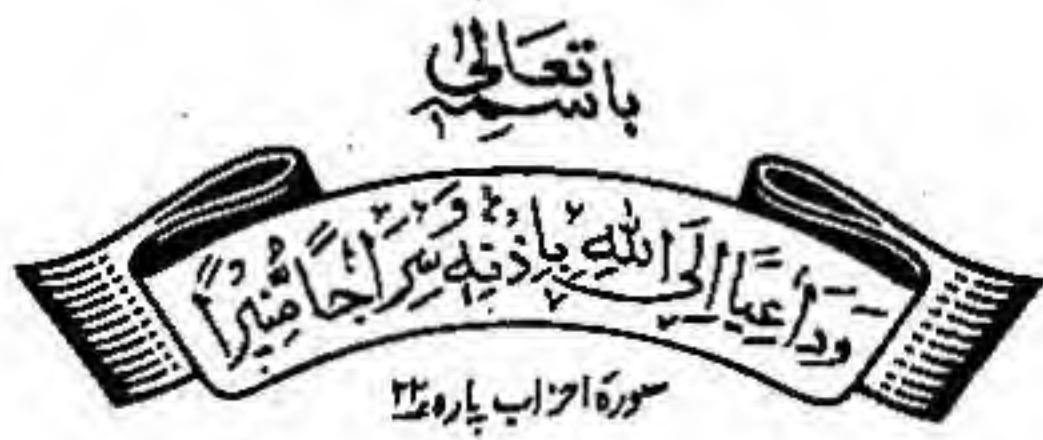 باسمہٖ تعالیٰ
وَدَاعِيًا إِلَى اللّٰهِ بِإِذْنِهٖ وَسِرَاجًا مُّنِيرًا
سورۃ احزاب پارہ ۲۲